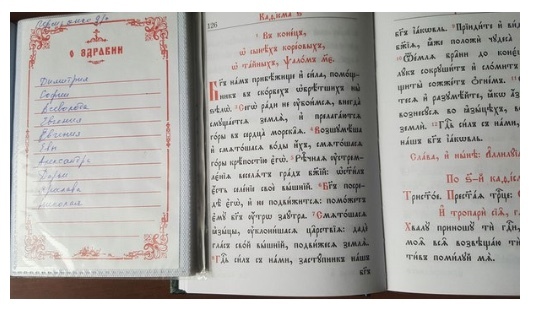 О ЗДРАВИИ
Димитрия
Софии
Всеволода
Евгения
Евгения
Яны
Александра
Дарьи
Ярослава
Николая
126
Каѳїсма ѕ҃
Въ конецъ,
ѡ сынѣхъ корєовыхъ,
ѡ тайныхъ, ѱаломъ, м҃е.
Бг҃ъ намъ прибѣжище и҆ сила, помощ-
никъ въ скорбехъ ѡ҆брѣтшихъ ны
ѕѣлѡ. Сегѡ̀ ради не ѹ҆боимсѧ, внегда̀
смѹщаетсѧ землѧ̀, и҆ прелагаютсѧ
горы въ сердца̀ морскаѧ. Возшѹмѣша
и҆ смѧтошасѧ воды и҆хъ, смѧтошасѧ
горы крѣпостїю є҆гѡ̀. Рѣчнаѧ ѹ҆стрем-
лєнїѧ веселѧтъ градъ бж҃їй: ѡ҆ст҃илъ
є҆сть селенїе своѐ вышнїй. Бг҃ъ посре-
дѣ̀ є҆гѡ̀, и҆ не подвижитсѧ: поможетъ
є҆мѹ̀ бг҃ъ ѹ҆трѡ заѹтра. Смѧтошасѧ
ꙗ҆зыцы, ѹ҆клонишасѧ царствїѧ: дадѐ
гласъ свой вышнїй, подвижесѧ землѧ̀.
Гд҇ь силъ съ нами, застѹпникъ нашъ
бг҃ъ
бг҃ъ і҆акѡвль. Прїидите и҆ ви
бж҃їѧ, ꙗ҆же положи чѹдеса̀
землѝ. ѿемлѧ брани до конє
лѹкъ сокрѹшитъ и҆ сломитъ
щиты̀ сожжетъ ѻ҆гнемъ.
тесѧ и҆ разѹмѣйте, ꙗ҆кѡ а҆зъ
вознесѹсѧ во ꙗ҆зыцѣхъ, во
землѝ. Гд҇ь силъ съ нами,
нашъ бг҃ъ і҆акѡвль.
Слава, и҆ нынѣ: Аллилѹїа
По ѕ҃-й каѳїс
Трист҃ое. Прест҃аѧ трⷪ҇це:
И҆ тропари сїѧ, г
Хвалѹ̀ приношѹ ти гд҇и,
моѧ̑ всѧ̑ возвѣщаю ти
тивъ помилѹй мѧ̀.